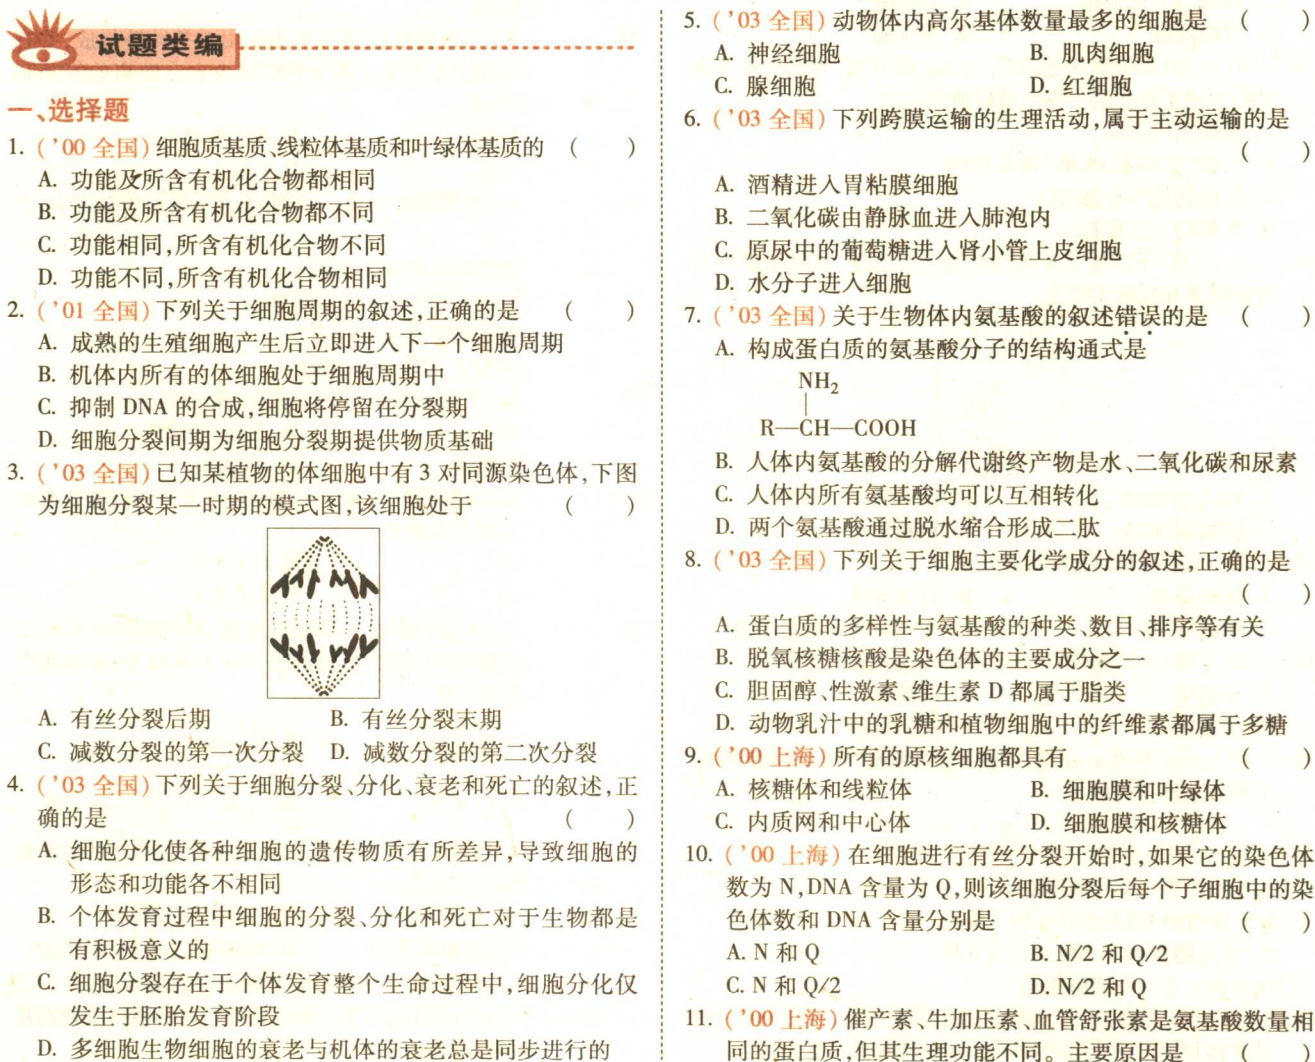 试题类编
一、选择题
1. (’00 全国)细胞质基质、线粒体基质和叶绿体基质的 (　　)
A. 功能及所含有机化合物都相同
B. 功能及所含有机化合物都不同
C. 功能相同,所含有机化合物不同
D. 功能不同,所含有机化合物相同
2. (’01 全国)下列关于细胞周期的叙述,正确的是 (　　)
A. 成熟的生殖细胞产生后立即进入下一个细胞周期
B. 机体内所有的体细胞处于细胞周期中
C. 抑制 DNA 的合成,细胞将停留在分裂期
D. 细胞分裂间期为细胞分裂期提供物质基础
3. (’03 全国)已知某植物的体细胞中有 3 对同源染色体,下图
为细胞分裂某一时期的模式图,该细胞处于 (　　)
A. 有丝分裂后期 B. 有丝分裂末期
C. 减数分裂的第一次分裂 D. 减数分裂的第二次分裂
4. (’03 全国)下列关于细胞分裂、分化、衰老和死亡的叙述,正
确的是 (　　)
A. 细胞分化使各种细胞的遗传物质有所差异,导致细胞的
形态和功能各不相同
B. 个体发育过程中细胞的分裂、分化和死亡对于生物都是
有积极意义的
C. 细胞分裂存在于个体发育整个生命过程中,细胞分化仅
发生于胚胎发育阶段
D. 多细胞生物细胞的衰老与机体的衰老总是同步进行的
5. (’03 全国)动物体内高尔基体数量最多的细胞是 (　　)
A. 神经细胞 B. 肌肉细胞
C. 腺细胞 D. 红细胞
6. (’03 全国)下列跨膜运输的生理活动,属于主动运输的是
(　　)
A. 酒精进入胃粘膜细胞
B. 二氧化碳由静脉血进入肺泡内
C. 原尿中的葡萄糖进入肾小管上皮细胞
D. 水分子进入细胞
7. (’03 全国)关于生物体内氨基酸的叙述错误的是 (　　)
A. 构成蛋白质的氨基酸分子的结构通式是
NH₂
R—CH—COOH
B. 人体内氨基酸的分解代谢终产物是水、二氧化碳和尿素
C. 人体内所有氨基酸均可以互相转化
D. 两个氨基酸通过脱水缩合形成二肽
8. (’03 全国)下列关于细胞主要化学成分的叙述,正确的是
(　　)
A. 蛋白质的多样性与氨基酸的种类、数目、排序等有关
B. 脱氧核糖核酸是染色体的主要成分之一
C. 胆固醇、性激素、维生素 D 都属于脂类
D. 动物乳汁中的乳糖和植物细胞中的纤维素都属于多糖
9. (’00 上海)所有的原核细胞都具有 (　　)
A. 核糖体和线粒体 B. 细胞膜和叶绿体
C. 内质网和中心体 D. 细胞膜和核糖体
10. (’00 上海)在细胞进行有丝分裂开始时,如果它的染色体
数为 N,DNA 含量为 Q,则该细胞分裂后每个子细胞中的染
色体数和 DNA 含量分别是 (　　)
A. N 和 Q B. N/2 和 Q/2
C. N 和 Q/2 D. N/2 和 Q
11. (’00 上海)催产素、牛加压素、血管舒张素是氨基酸数量相
同的蛋白质,但其生理功能不同。主要原因是 (　　)